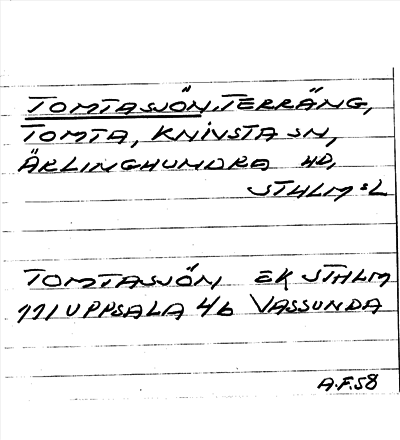 TOMTASJÖN, TERRÄNG,
TOMTA, KNIVSTA SN,
ÄRLINGHUNDRA HD,
STHLM:L
TOMTASJÖN EK STHLM
111 UPPSALA 4b VASSUNDA
A.F.58